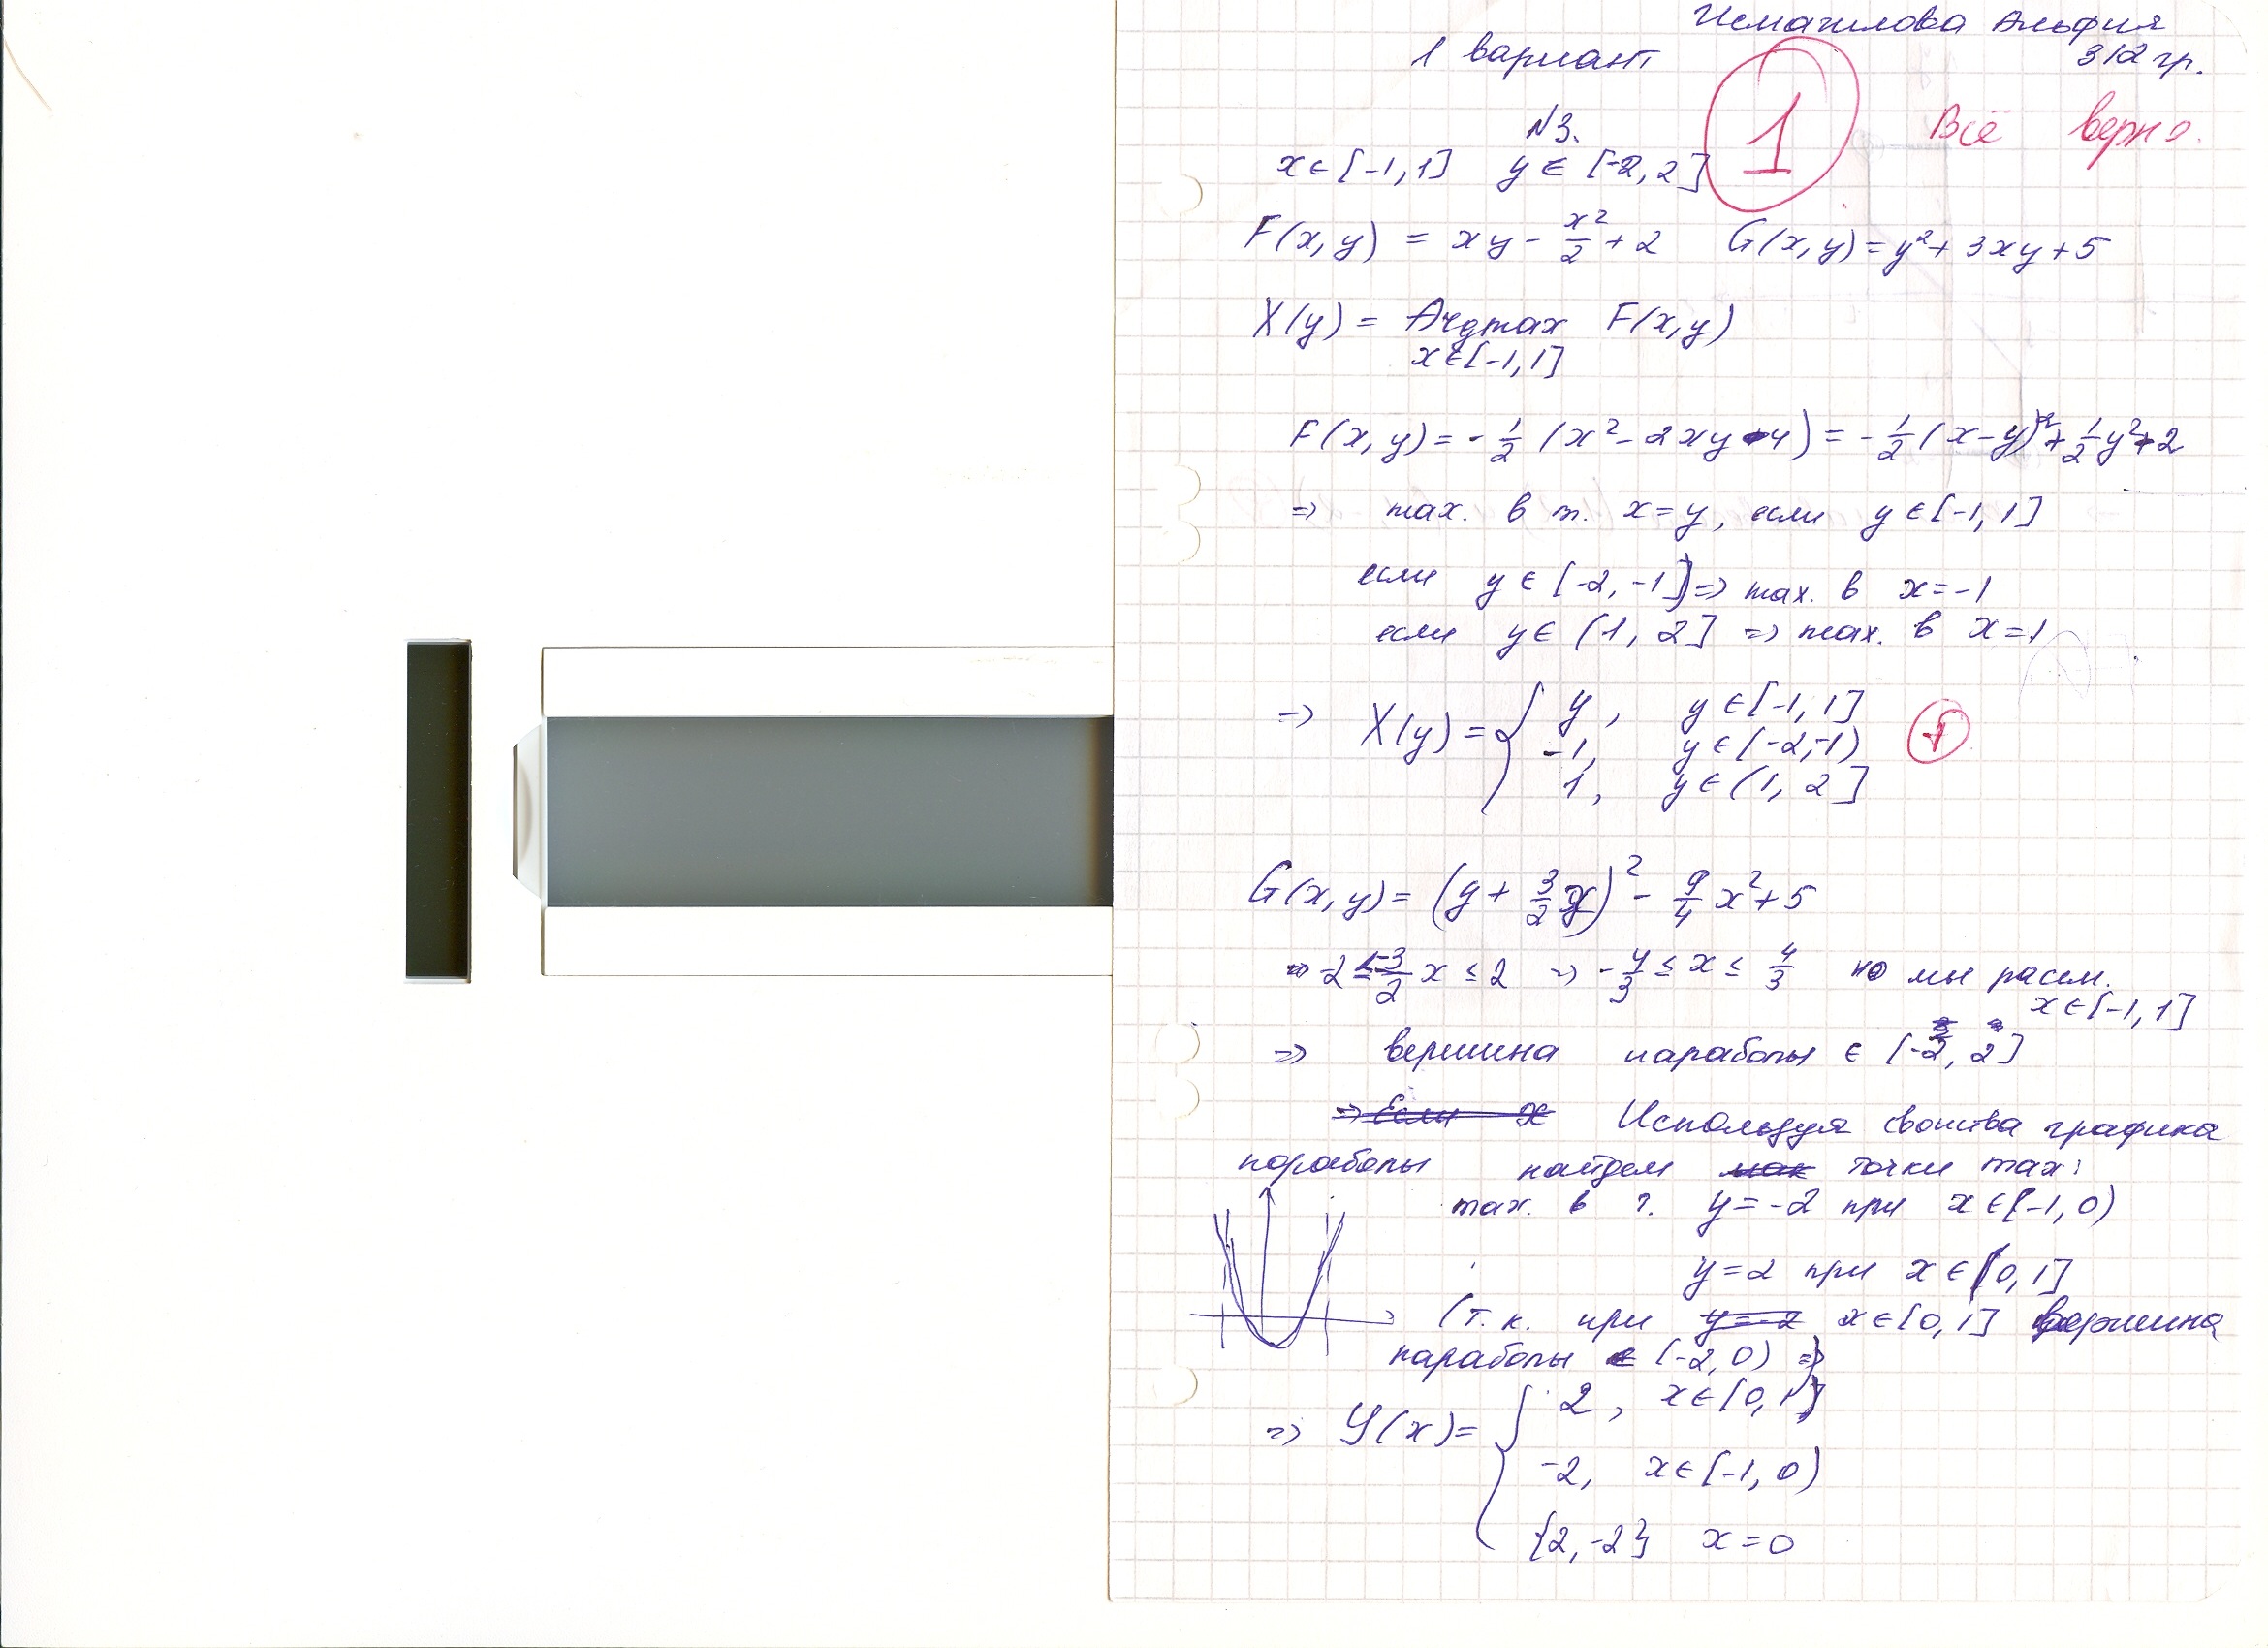 Исмагилова Альфия
1 вариант 312 гр.
1 Всё верно.
N3.
x ∈ [-1, 1] y ∈ [-2, 2]
F(x, y) = xy - x²/2 + 2 G(x, y) = y² + 3xy + 5
X(y) = Argmax F(x, y)
x ∈ [-1, 1]
F(x, y) = - 1/2 (x² - 2xy - 4) = - 1/2 (x - y)² + 1/2 y² + 2
⇒ max. в т. x = y, если y ∈ [-1, 1]
если y ∈ [-2, -1) ⇒ max. в x = -1
если y ∈ (1, 2] ⇒ max. в x = 1
⇒ X(y) = { y, y ∈ [-1, 1]
-1, y ∈ [-2, -1)
1, y ∈ (1, 2]
G(x, y) = (y + 3/2 x)² - 9/4 x² + 5
-2 ≤ -3/2 x ≤ 2 ⇒ -4/3 ≤ x ≤ 4/3 но мы рассм.
x ∈ [-1, 1]
⇒ вершина параболы ∈ [-2, 2]
⇒ Если x Используя свойства графика
параболы найдем точки max:
max. в т. y = -2 при x ∈ [-1, 0)
y = 2 при x ∈ [0, 1]
(т.к. при y = -2 x ∈ [0, 1] вершина
параболы ∈ [-2, 0) ⇒)
⇒ Y(x) = { 2, x ∈ [0, 1]
-2, x ∈ [-1, 0)
{2, -2} x = 0